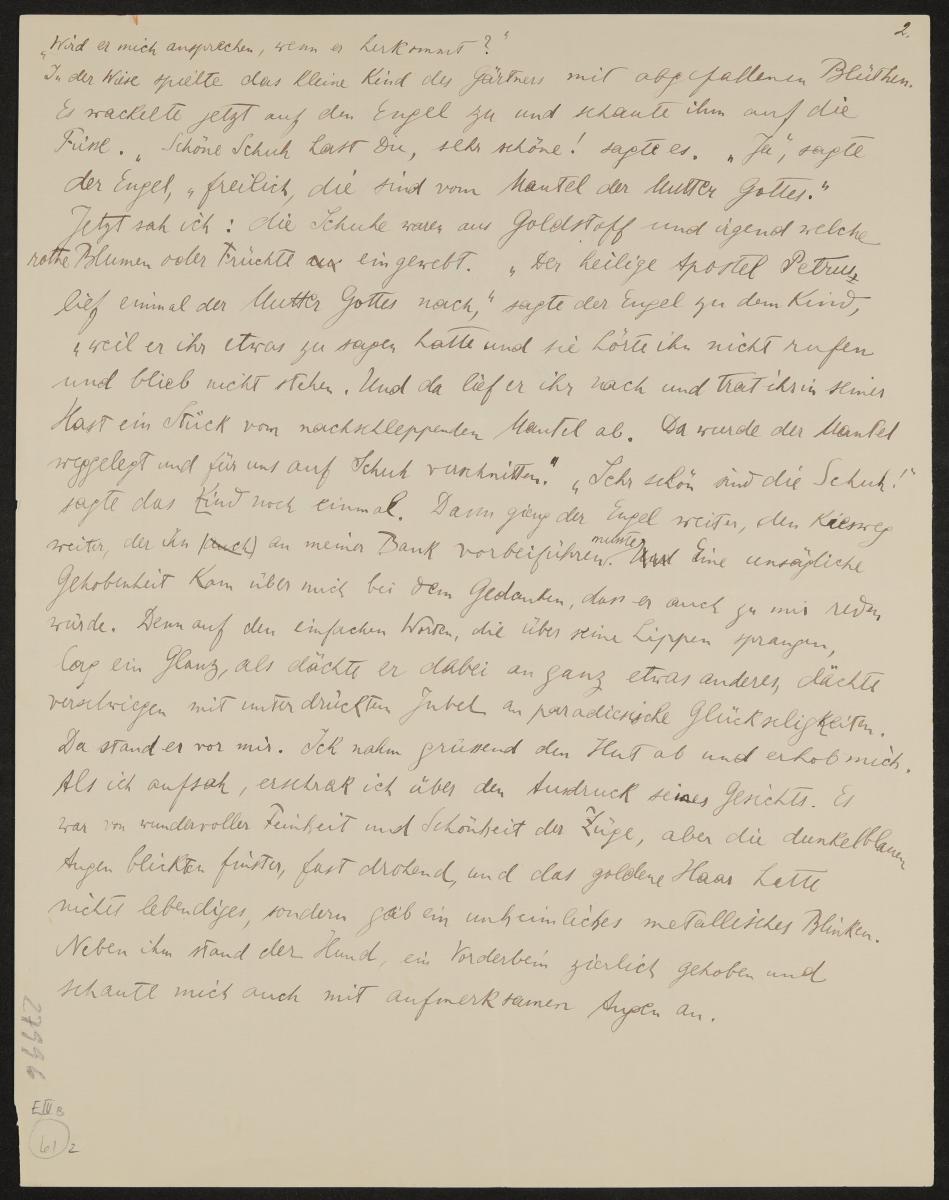 2.
„Wird er mich ansprechen, wenn er herkommt?"
In der Wiese spielte das kleine Kind des Gärtners mit abgefallenen Blüthen.
Es wackelte jetzt auf den Engel zu und schaute ihm auf die
Füsse. „Schöne Schuh hast Du, sehr schöne! sagte es. „Ja", sagte
der Engel, „freilich, die sind vom Mantel der Mutter Gottes."
Jetzt sah ich: die Schuhe waren aus Goldstoff und irgend welche
rothe Blumen oder Früchte eingewebt. „Der heilige Apostel Petrus
lief einmal der Mutter Gottes nach," sagte der Engel zu dem Kind,
„weil er ihr etwas zu sagen hatte und sie hörte ihn nicht rufen
und blieb nicht stehen. Und da lief er ihr nach und trat ihr in seiner
Hast ein Stück vom nachschleppenden Mantel ab. Da wurde der Mantel
weggelegt und für uns auf Schuh verschnitten." „Sehr schön sind die Schuh!"
sagte das Kind noch einmal. Dann gieng der Engel weiter, den Kiesweg
weiter, der ihn (auch) an meiner Bank vorbeiführen musste. Und Eine unsägliche
Gehobenheit kam über mich bei dem Gedanken, dass er auch zu mir reden
würde. Denn auf den einfachen Worten, die über seine Lippen sprangen,
lag ein Glanz, als dächte er dabei an ganz etwas anderes, dächte
verschwiegen mit unterdrücktem Jubel an paradiesische Glückseligkeiten.
Da stand er vor mir. Ich nahm grüssend den Hut ab und erhob mich.
Als ich aufsah, erschrak ich über den Ausdruck seines Gesichts. Es
war von wundervoller Feinheit und Schönheit der Züge, aber die dunkelblauen
Augen blickten finster, fast drohend, und das goldene Haar hatte
nichts lebendiges, sondern gab ein unheimliches metallisches Blinken.
Neben ihm stand der Hund, ein Vorderbein zierlich gehoben und
schaute mich auch mit aufmerksamen Augen an.
27996
E IV B
61 2